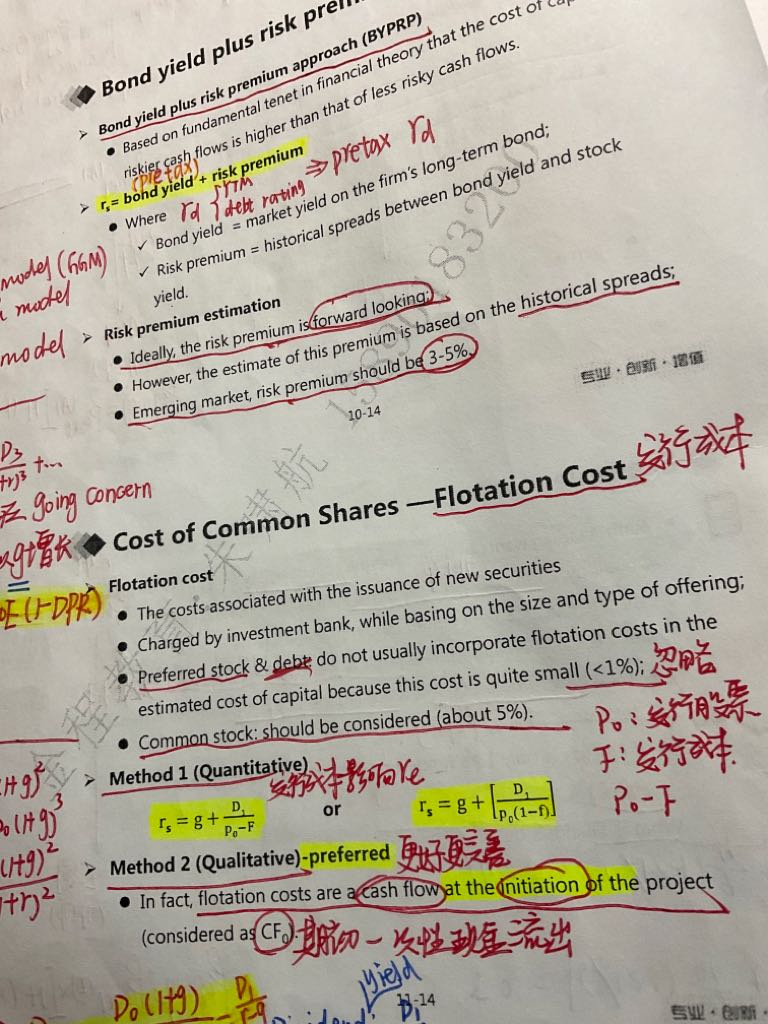 Bond yield plus risk
Bond yield plus risk premium approach (BYPRP)
Based on fundamental tenet in financial theory that the cost of
riskier cash flows is higher than that of less risky cash flows.
(pretax)
rs= bond yield + risk premium ⇒ pretax rd
Where rd { YTM
debt rating
✓ Bond yield = market yield on the firm's long-term bond;
✓ Risk premium = historical spreads between bond yield and stock
yield.
model (GGM)
model
model
Risk premium estimation
Ideally, the risk premium is forward looking;
However, the estimate of this premium is based on the historical spreads;
Emerging market, risk premium should be 3-5%.
10-14
专业·创新·增值
D3
+...
going concern
增长
Cost of Common Shares —Flotation Cost 发行成本
Flotation cost
The costs associated with the issuance of new securities
Charged by investment bank, while basing on the size and type of offering;
Preferred stock & debt do not usually incorporate flotation costs in the
estimated cost of capital because this cost is quite small (<1%); 忽略
Common stock: should be considered (about 5%).
(1-DPR)
P0: 发行股票
F: 发行成本
P0-F
Method 1 (Quantitative) 发行成本影响re
rs = g + D1/(P0−F) or rs = g + [D1/(p0(1−f))]
Method 2 (Qualitative)-preferred 更好更完善
In fact, flotation costs are a cash flow at the initiation of the project
(considered as CF0). 期初一次性现金流出
D0(1+g)
D1
r-g
yield
11-14
D1
专业·创新
金程教育
15890183200